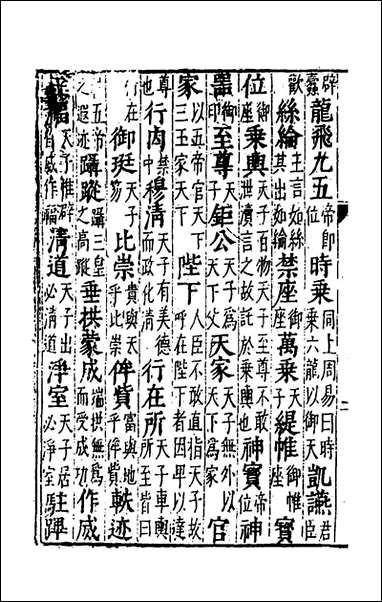 龍飛九五帝即位時乘同上周易曰時乘六龍以御天凱讌君臣
歡絲綸王言如絲其出如綸禁座御座萬乘天子緹帷御帷座寶
位御座乘輿天子百物天子至尊不敢渫瀆言之故託於乘輿也神寶帝位神
器御印至尊天子鉅公天子為天下父天家天子無外以天下為家官
家以五帝官天下三王家天下陛下人臣不敢直指天子故呼在陛下者因卑以達
尊也行內禁中穆清天子有美德而政化清行在所天子車輿所至皆曰
行在御珽天子笏比崇貴與天乎比崇侔貲富與地乎侔貲軼迹
五帝之遐迹躡蹤躡三皇之高蹤垂拱蒙成端拱無為而受成功作威
作福天子惟辟作威作福清道天子出必清道淨室天子居必淨室駐蹕